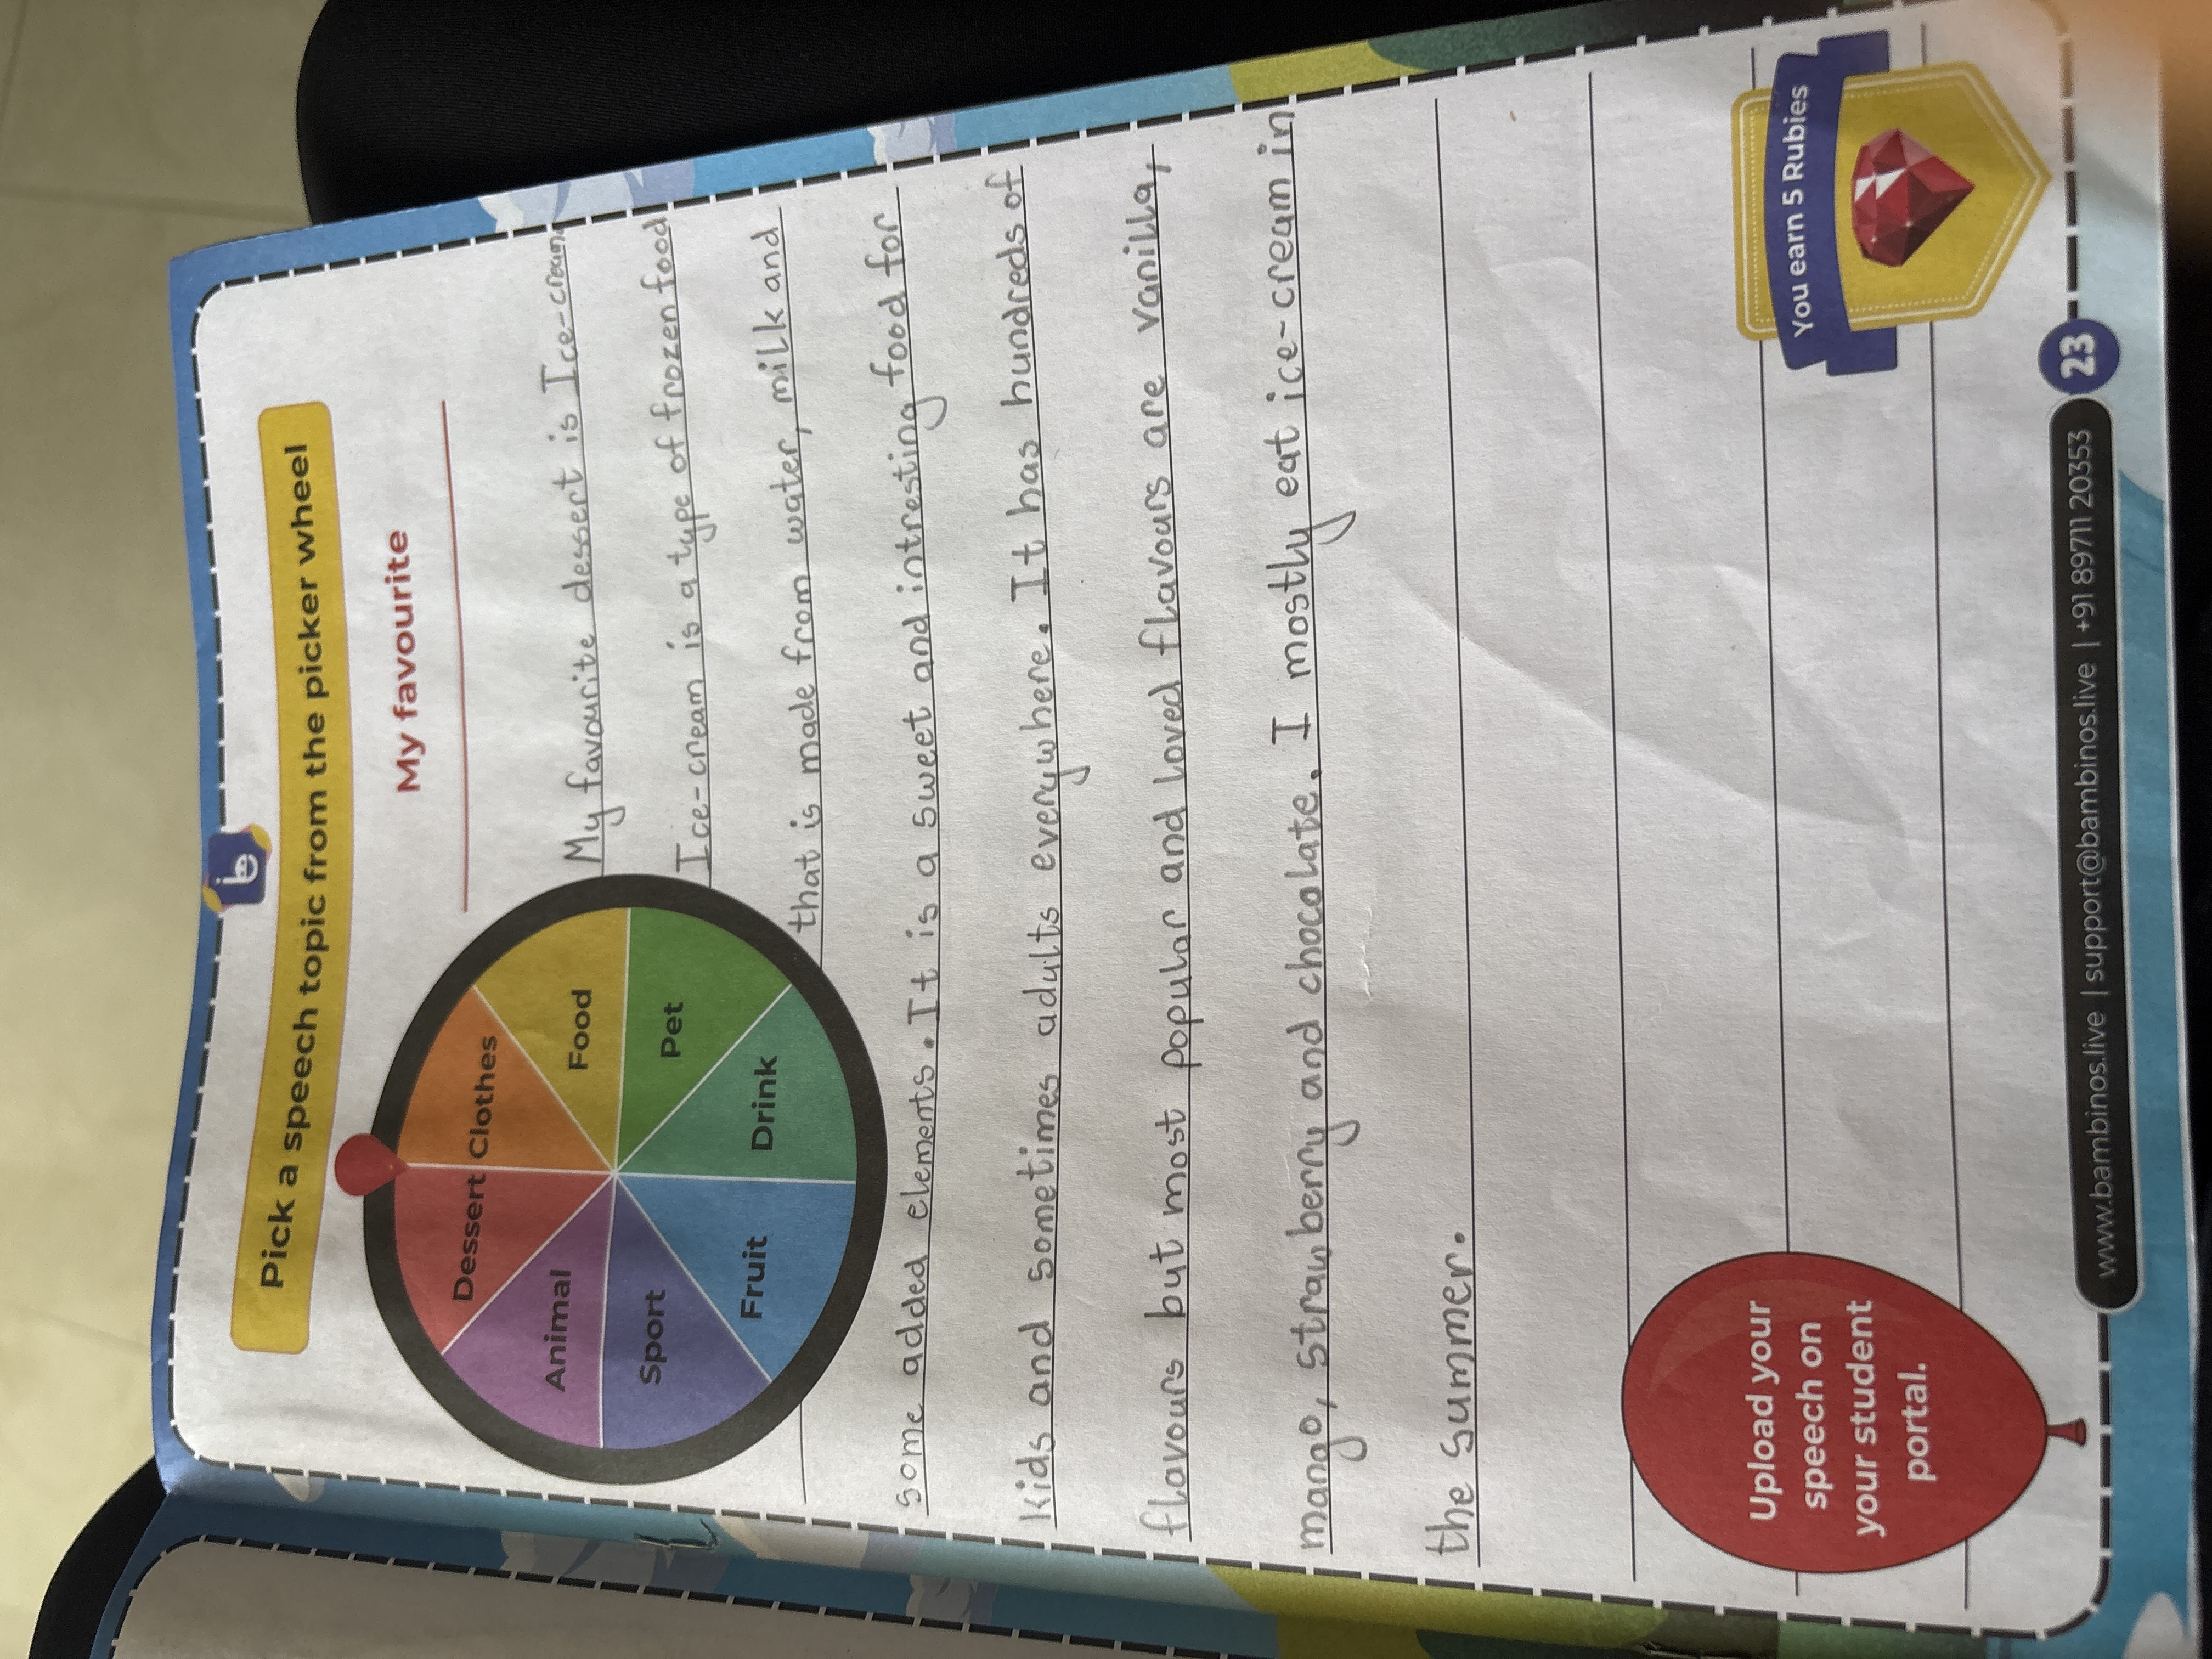 Pick a speech topic from the picker wheel
My favourite
Dessert
Clothes
Food
Pet
Drink
Fruit
Sport
Animal
My favourite dessert is Ice-cream
Ice-cream is a type of frozen food
that is made from water, milk and
some added elements. It is a sweet and intresting food for
kids and sometimes adults everywhere. It has hundreds of
flavours but most popular and loved flavours are vanilla,
mango, strawberry and chocolate. I mostly eat ice-cream in
the summer.
Upload your
speech on
your student
portal.
You earn 5 Rubies
www.bambinos.live | support@bambinos.live | +91 89711 20353
23